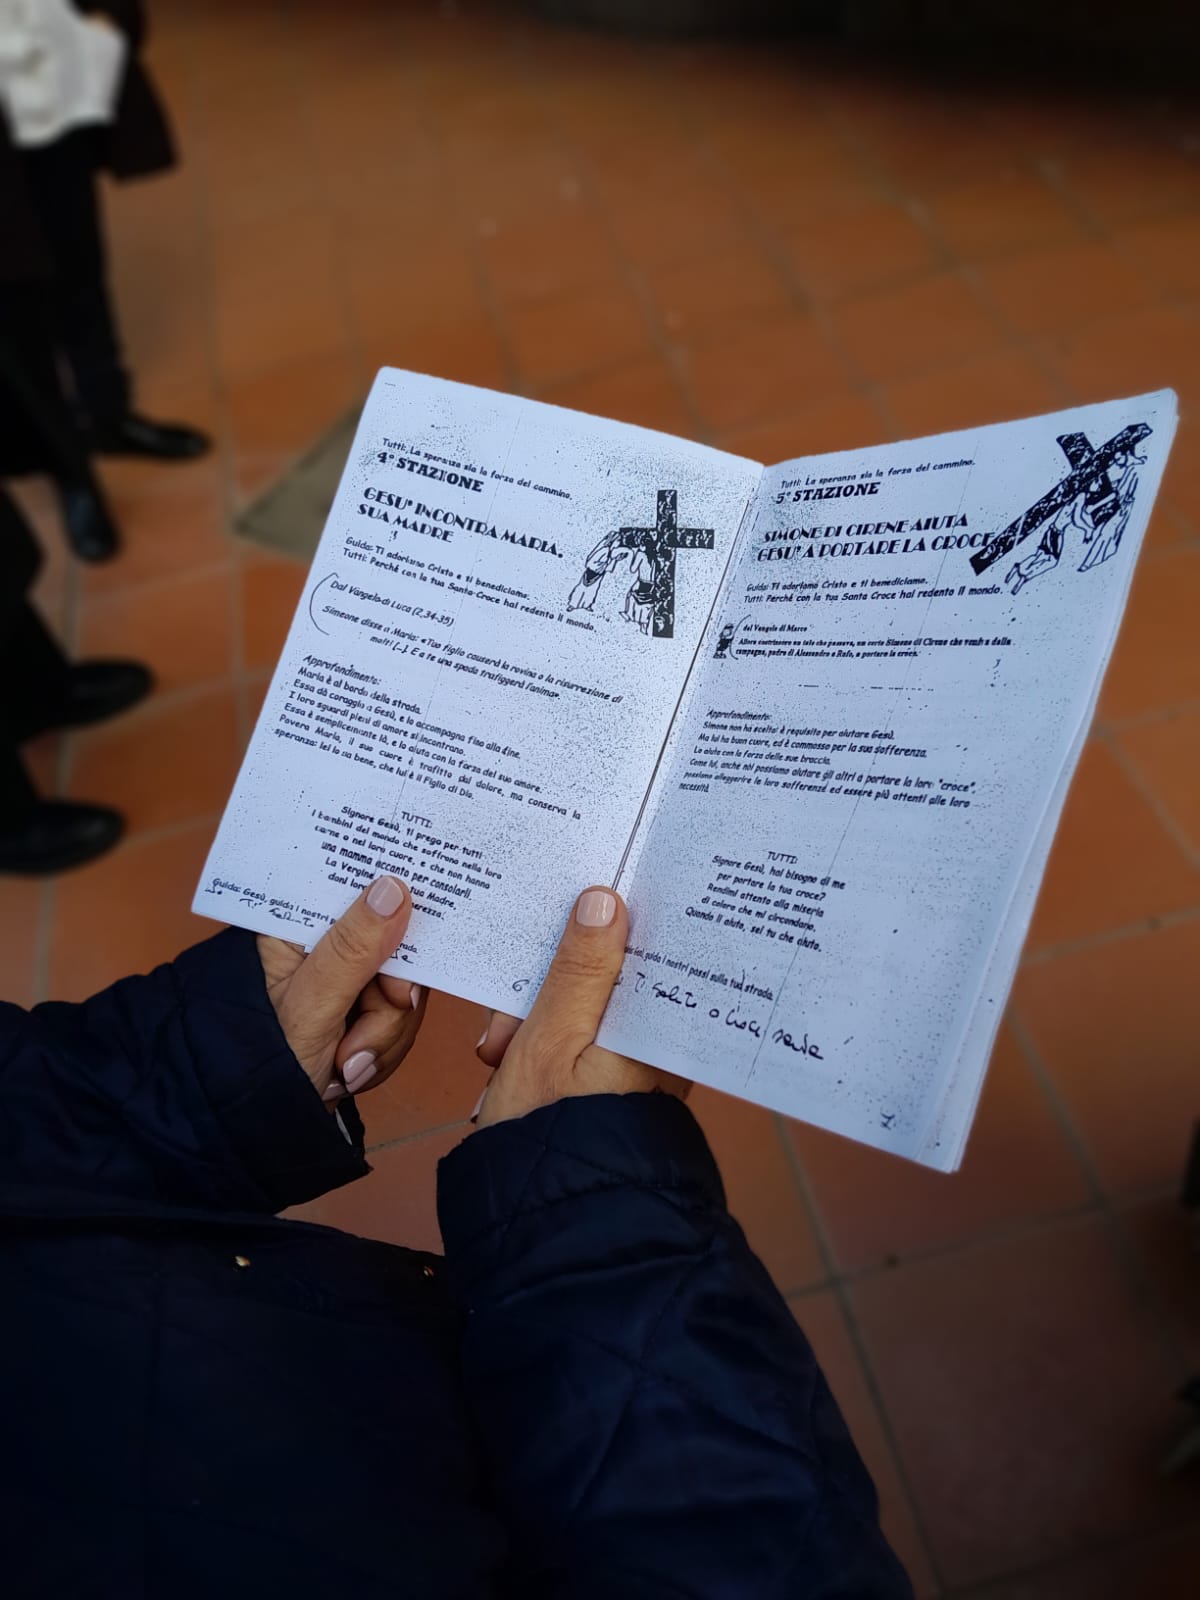 Tutti: La speranza sia la forza del cammino.
4° STAZIONE
GESU' INCONTRA MARIA,
SUA MADRE
Guida: Ti adoriamo Cristo e ti benediciamo.
Tutti: Perché con la tua Santa Croce hai redento il mondo.
Dal Vangelo di Luca (2,34-35)
Simeone disse a Maria: «Tuo figlio causerà la rovina o la risurrezione di
molti [...]. E a te una spada trafiggerà l'anima».
Approfondimento:
Maria è al bordo della strada.
Essa dà coraggio a Gesù, e lo accompagna fino alla fine.
I loro sguardi pieni di amore si incontrano.
Essa è semplicemente là, e lo aiuta con la forza del suo amore.
Povera Maria, il suo cuore è trafitto dal dolore, ma conserva la
speranza: lei lo sa bene, che lui è il Figlio di Dio.
TUTTI:
Signore Gesù, ti prego per tutti
i bambini del mondo che soffrono nella loro
carne o nel loro cuore, e che non hanno
una mamma accanto per consolarli.
La Vergine tua Madre,
doni loro
Guida: Gesù, guida i nostri
Ti Saluto
6
Tutti: La speranza sia la forza del cammino.
5° STAZIONE
SIMONE DI CIRENE AIUTA
GESU' A PORTARE LA CROCE
Guida: Ti adoriamo Cristo e ti benediciamo.
Tutti: Perché con la tua Santa Croce hai redento il mondo.
dal Vangelo di Marco
Allora costrinsero un tale che passava, un certo Simone di Cirene che veniva dalla
campagna, padre di Alessandro e Rufo, a portare la croce.
Approfondimento:
Simone non ha scelto: è requisito per aiutare Gesù.
Ma lui ha buon cuore, ed è commosso per la sua sofferenza.
Lo aiuta con la forza delle sue braccia.
Come lui, anche noi possiamo aiutare gli altri a portare la loro "croce",
possiamo alleggerire le loro sofferenze ed essere più attenti alle loro
necessità.
TUTTI:
Signore Gesù, hai bisogno di me
per portare la tua croce?
Rendimi attento alla miseria
di coloro che mi circondano.
Quando li aiuto, sei tu che aiuto.
guida i nostri passi sulla tua strada.
Ti Saluto o Croce santa
7